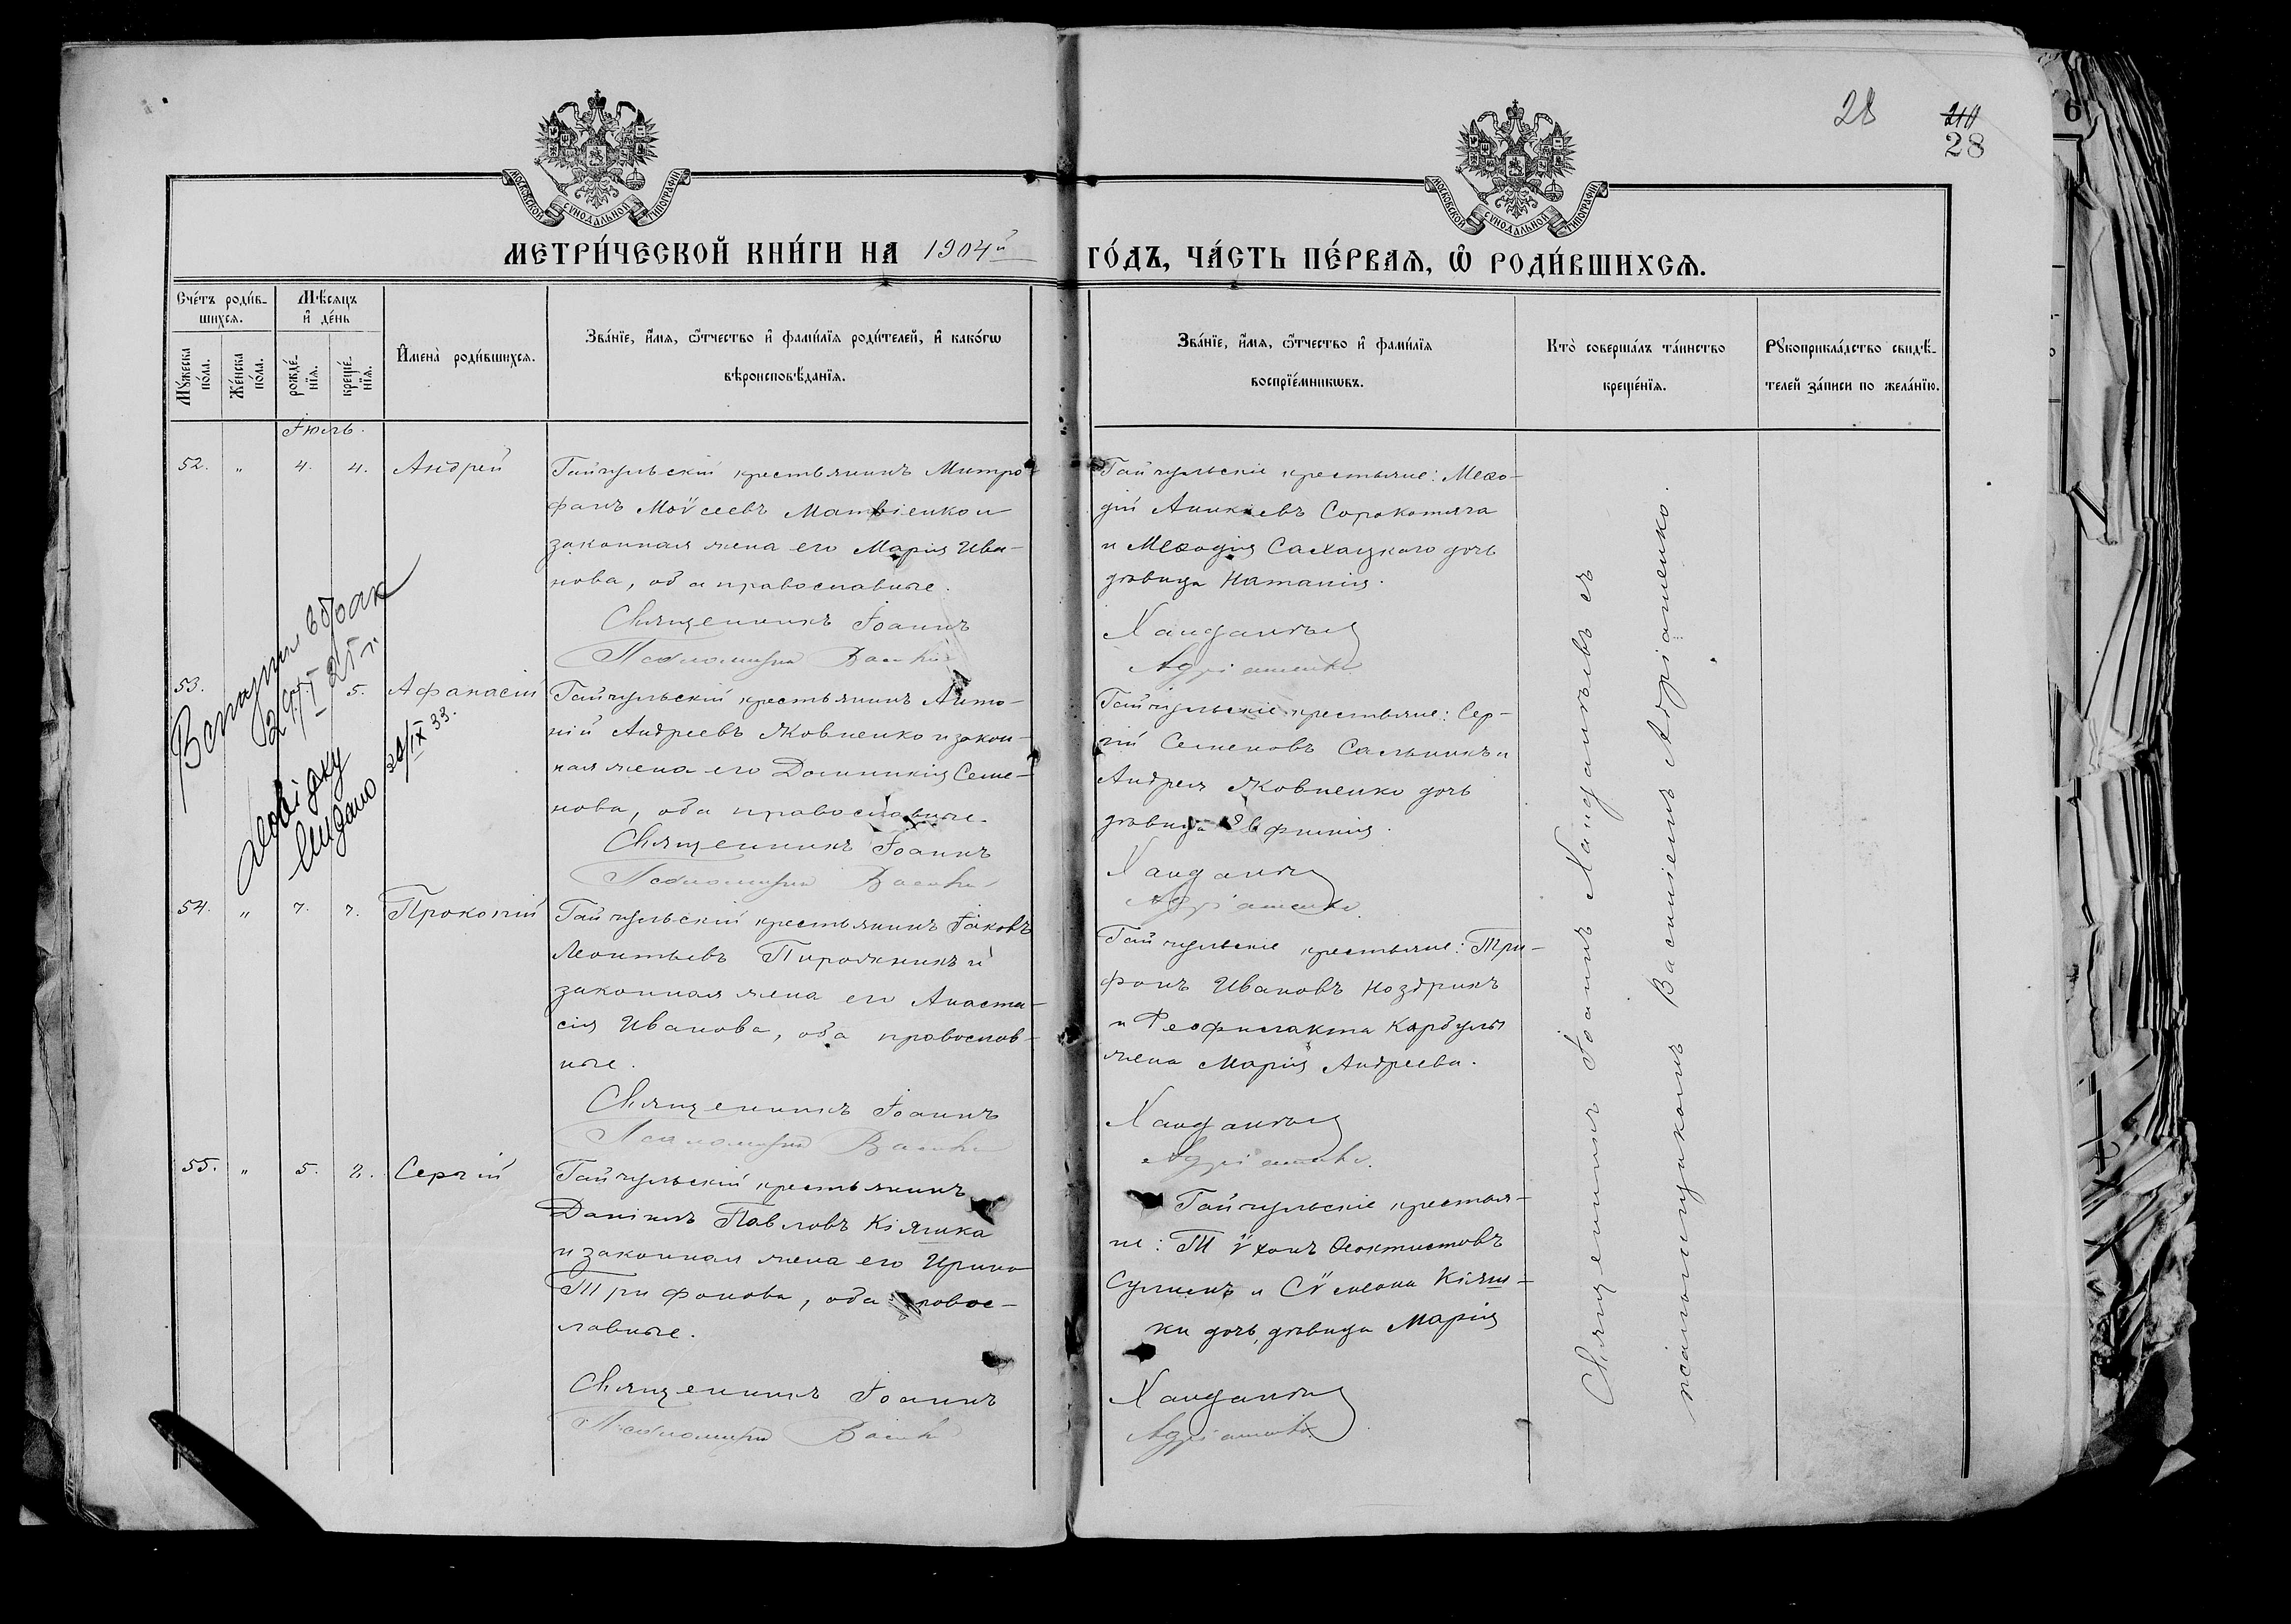 28
210
28
МОСКОВСКОЙ СѴНОДАЛЬНОЙ ТИПОГРАФІИ
МОСКОВСКОЙ СѴНОДАЛЬНОЙ ТИПОГРАФІИ
МЕТРИ́ЧЕСКОЙ КНИ́ГИ НА 1904й
ГО́ДЪ, ЧА́СТЬ ПЕ́РВАѦ, Ѽ РОДИ́ВШИХСѦ.
Сче́тъ роди́в-
шихсѧ.
Мѣ́сѧцъ
и҆ де́нь
Мꙋ́жеска по́ла.
Же́нска по́ла.
рожде́-
нїѧ.
креще́-
нїѧ.
И҆мена̀ роди́вшихсѧ.
Зва́нїе, и҆́мѧ, ѻ҆́тчество и҆ фами́лїѧ роди́телей, и҆ како́гѡ
вѣроисповѣ́данїѧ.
Зва́нїе, и҆́мѧ, ѻ҆́тчество и҆ фами́лїѧ
воспрїе́мникѡвъ.
Кто̀ соверша́лъ та́инство
креще́нїѧ.
Рꙋкоприкла́дство свидѣ́-
телей за́писи по жела́нїю.
Іюль.
52. " 4. 4. Андрей
Гайчульскій крестьянинъ Митро-
фанъ Моѵсеевъ Матвіенко и
законная жена его Марія Ива-
нова, оба православные.
Священникъ Іоаннъ
Псаломщикъ Василій
Гайчульскіе крестьяне: Меѳо-
дій Аникіевъ Сорокотяга
и Меѳодія Сахацкого дочь
девица Наталія.
Ханданѣевъ
Адріаненко.
53. 5. Афанасій
Гайчульскій крестьянинъ Анто-
ній Андреевъ Яковненко и закон-
ная жена его Домникія Семе-
нова, оба православные.
Священникъ Іоаннъ
Псаломщикъ Василій
Гайчульскіе крестьяне: Сер-
гій Семеновъ Сальникъ и
Андрея Яковненко дочь
девица Евфимія.
Ханданѣевъ
Адріаненко.
54. " 7. 7. Прокопій
Гайчульскій крестьянинъ Іаковъ
Леонтьевъ Пирожникъ и
законная жена его Анаста-
сія Иванова, оба православ-
ные.
Священникъ Іоаннъ
Псаломщикъ Василій
Гайчульскіе крестьяне: Три-
фонъ Ивановъ Ноздринъ
и Феофилакта Карбулы
жена Марія Андреева.
Ханданѣевъ
Адріаненко.
55. " 5. 7. Сергій
Гайчульскій крестьянинъ
Даніилъ Павловъ Кіяшка
и законная жена его Ирина
Трифонова, оба правос-
лавные.
Священникъ Іоаннъ
Псаломщикъ Василій
Гайчульскіе крестья-
не: Тѵхонъ Ѳеоктистовъ
Сулимъ и Сѵмеона Кіяш-
ки дочь, девица Марія
Ханданѣевъ
Адріаненко.
Священникъ Іоаннъ Ханданѣевъ съ
псаломщикомъ Василіемъ Адріаненко.
Вступил в брак
29/I 25 г.
довідку
видано 26/IX 33.